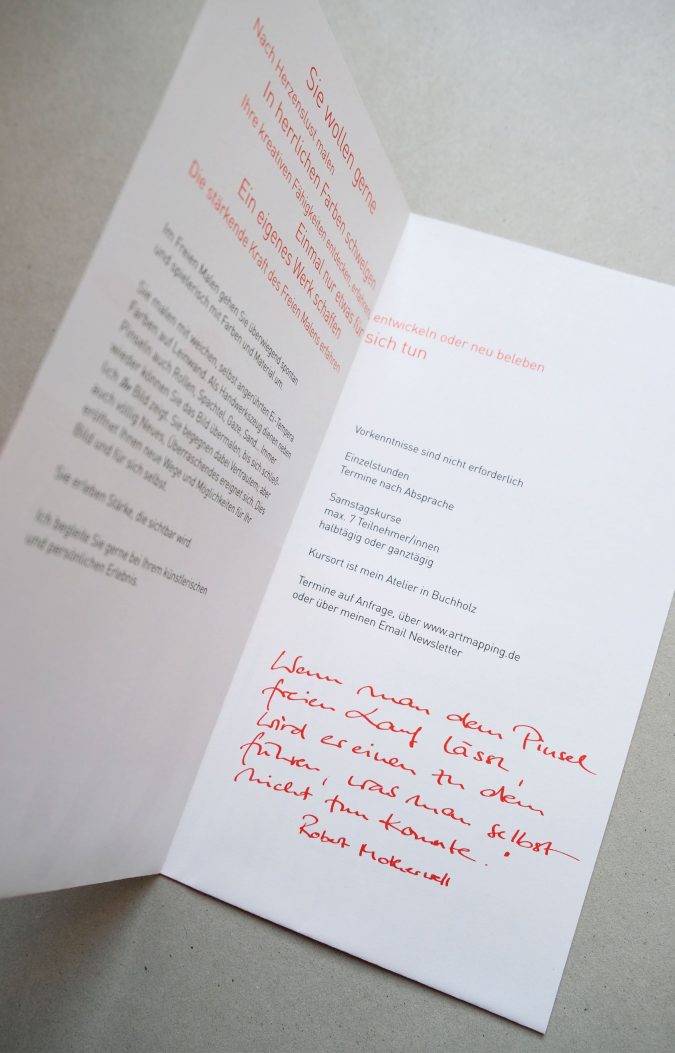 Sie wollen gerne
Nach Herzenslust malen
In herrlichen Farben schwelgen
Ihre kreativen Fähigkeiten entdecken, erfahren,
entwickeln oder neu beleben
Einmal nur etwas für sich tun
Ein eigenes Werk schaffen
Die stärkende Kraft des Freien Malens erfahren
Im Freien Malen gehen Sie überwiegend spontan
und spielerisch mit Farben und Material um.
Sie malen mit weichen, selbst angerührten Ei-Tempera
Farben auf Leinwand. Als Handwerkszeug dienen neben
Pinseln auch Rollen, Spachtel, Gaze, Sand... Immer
wieder können Sie das Bild übermalen, bis sich schließ-
lich Bild zeigt. Sie begegnen dabei Vertrautem, aber
auch völlig Neues, Überraschendes ereignet sich. Dies
eröffnet Ihnen neue Wege und Möglichkeiten für Ihr
Bild und für sich selbst.
Sie erleben Stärke, die sichtbar wird.
Ich begleite Sie gerne bei Ihrem künstlerischen
und persönlichen Erlebnis.
Vorkenntnisse sind nicht erforderlich
Einzelstunden
Termine nach Absprache
Samstagskurse
max. 7 Teilnehmer/innen
halbtägig oder ganztägig
Kursort ist mein Atelier in Buchholz
Termine auf Anfrage, über www.artmapping.de
oder über meinen Email Newsletter
Wenn man dem Pinsel
freien Lauf lässt,
wird er einen zu dem
führen, was man selbst
nicht tun konnte.
Robert Motherwell